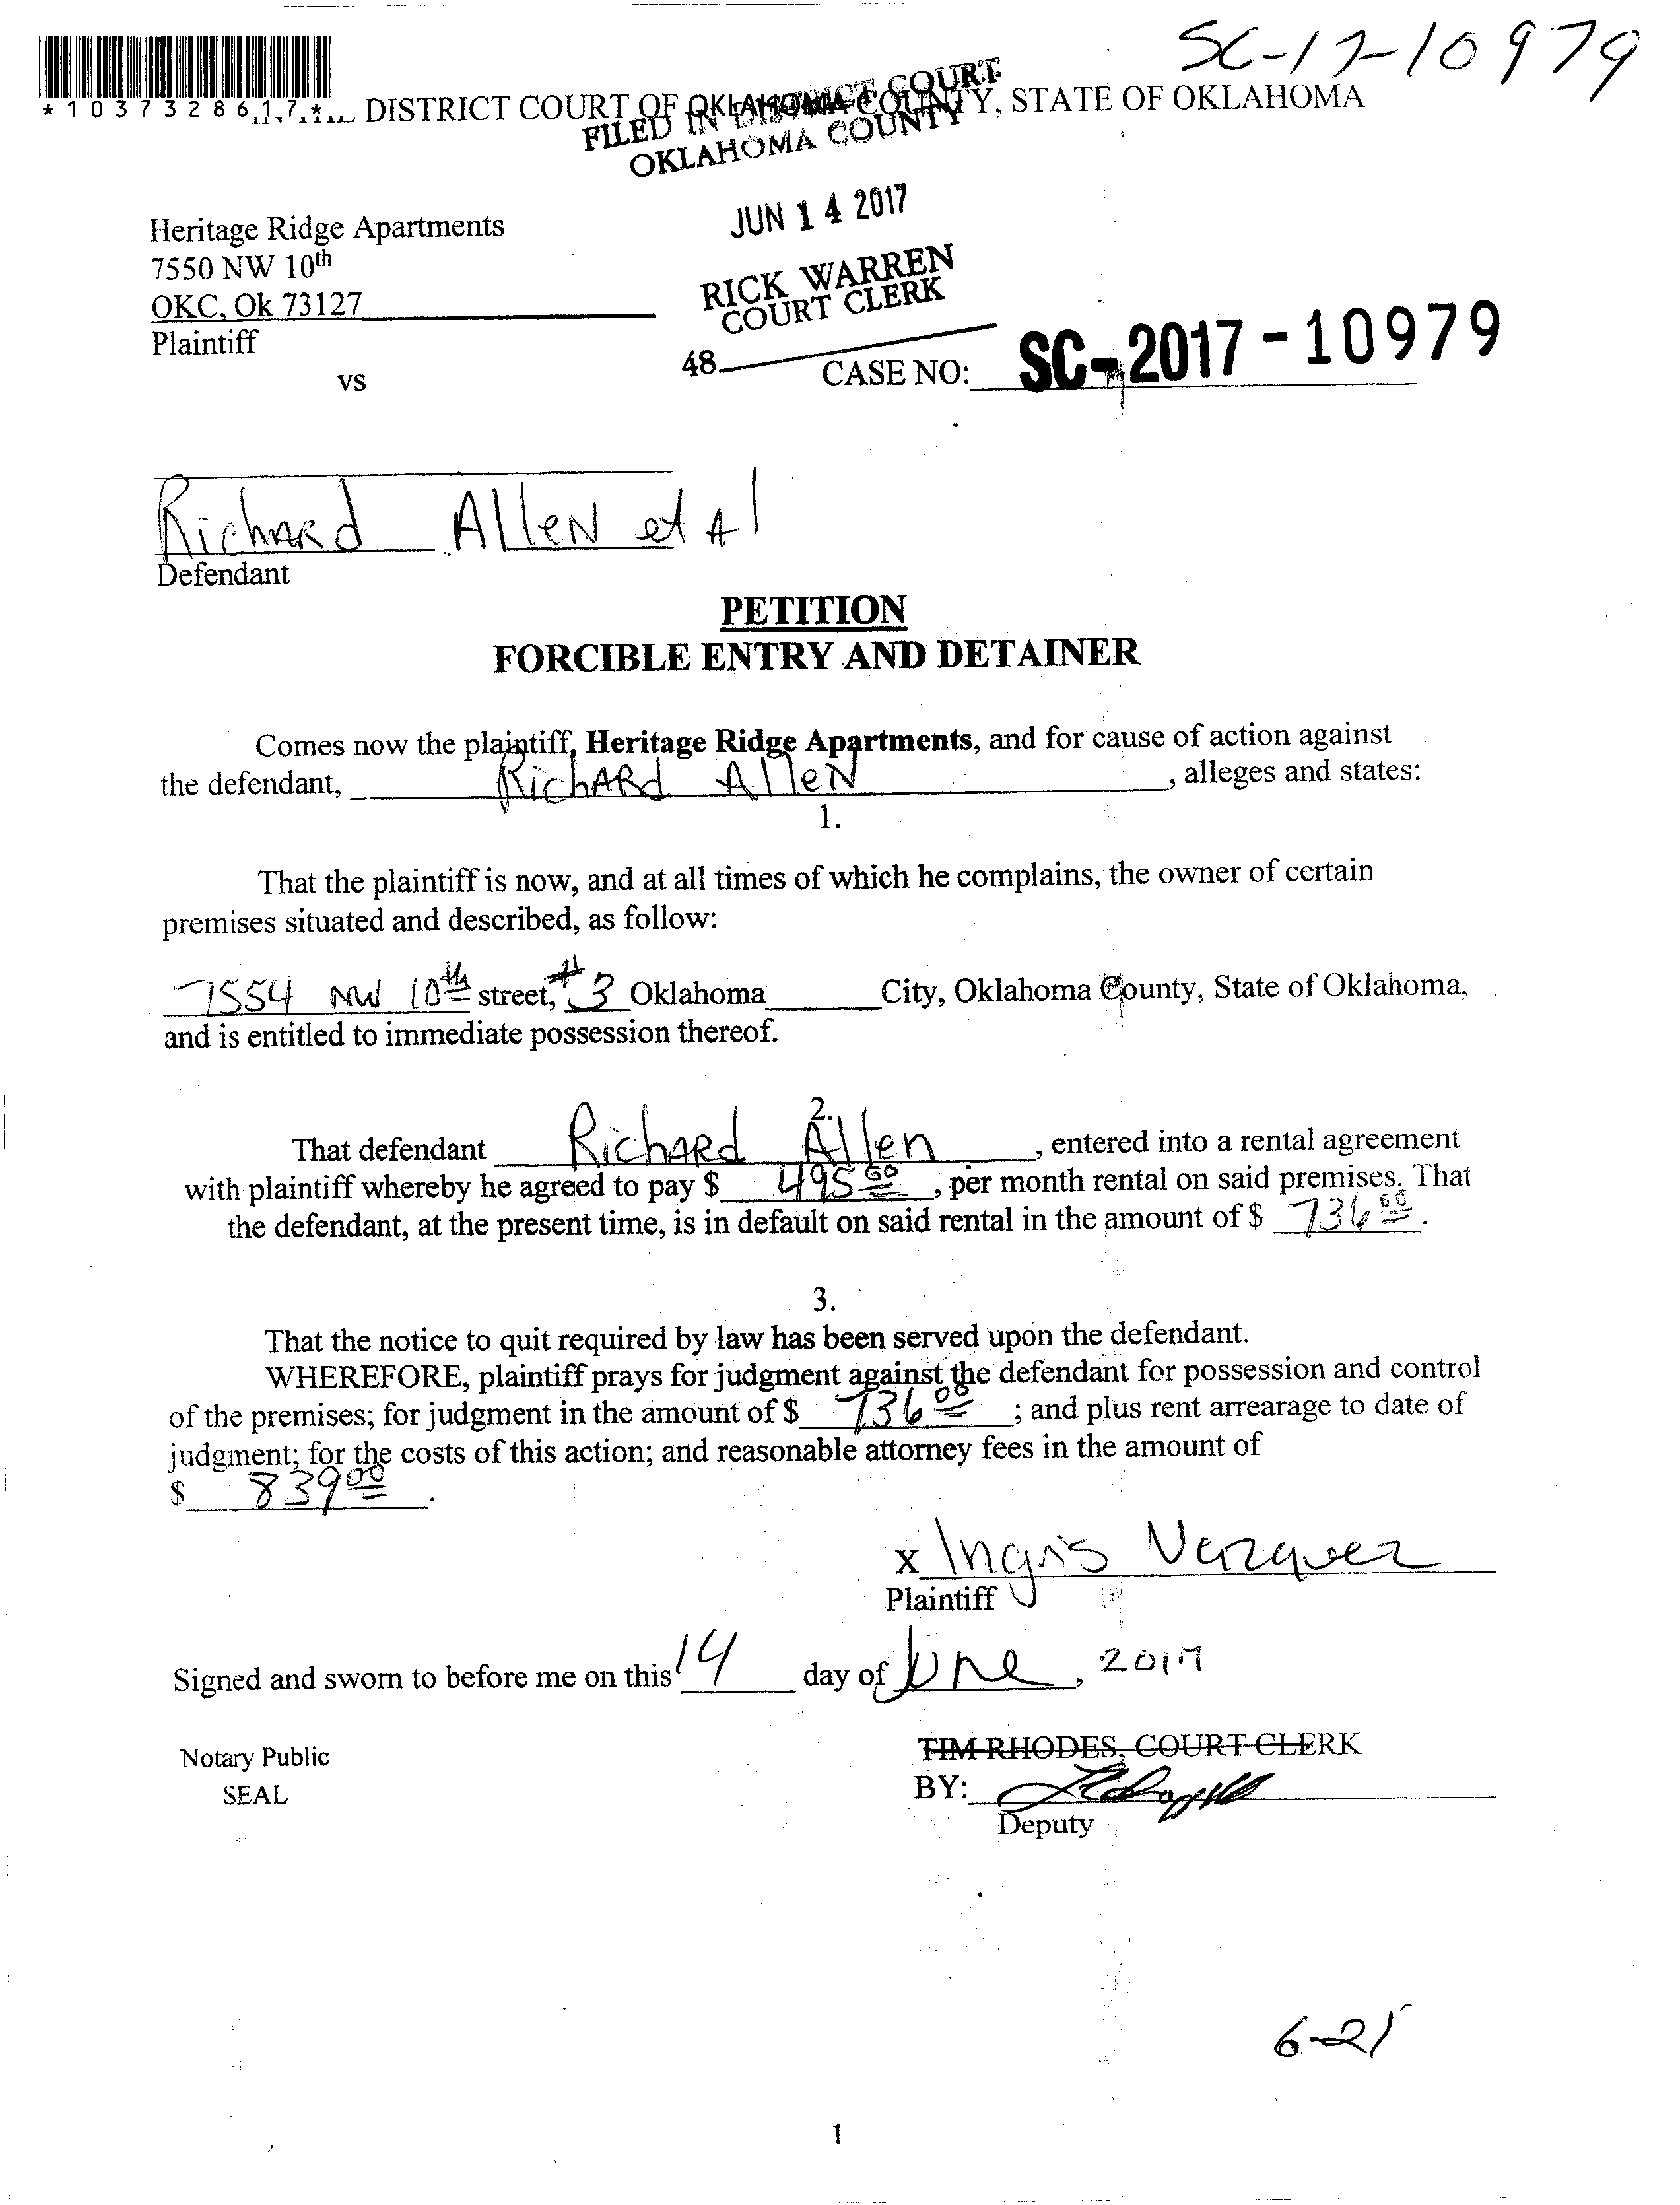 SC-17-10979
*1037328617*
DISTRICT COURT OF OKLAHOMA COUNTY, STATE OF OKLAHOMA
FILED IN DISTRICT COURT
OKLAHOMA COUNTY
JUN 14 2017
RICK WARREN
COURT CLERK
48
Heritage Ridge Apartments
7550 NW 10th
OKC, Ok 73127
Plaintiff
vs
CASE NO: SC-2017-10979
Richard Allen et Al
Defendant
PETITION
FORCIBLE ENTRY AND DETAINER
Comes now the plaintiff, Heritage Ridge Apartments, and for cause of action against
the defendant, Richard Allen, alleges and states:
1.
That the plaintiff is now, and at all times of which he complains, the owner of certain
premises situated and described, as follow:
7554 NW 10th street, #3 Oklahoma City, Oklahoma County, State of Oklahoma,
and is entitled to immediate possession thereof.
2.
That defendant Richard Allen, entered into a rental agreement
with plaintiff whereby he agreed to pay $ 495 00, per month rental on said premises. That
the defendant, at the present time, is in default on said rental in the amount of $ 736 00.
3.
That the notice to quit required by law has been served upon the defendant.
WHEREFORE, plaintiff prays for judgment against the defendant for possession and control
of the premises; for judgment in the amount of $ 736 00; and plus rent arrearage to date of
judgment; for the costs of this action; and reasonable attorney fees in the amount of
$ 839 00.
x Ingris Vazquez
Plaintiff
Signed and sworn to before me on this 14 day of June, 2017
Notary Public
SEAL
TIM RHODES, COURT CLERK
BY:
Deputy
6-21
1